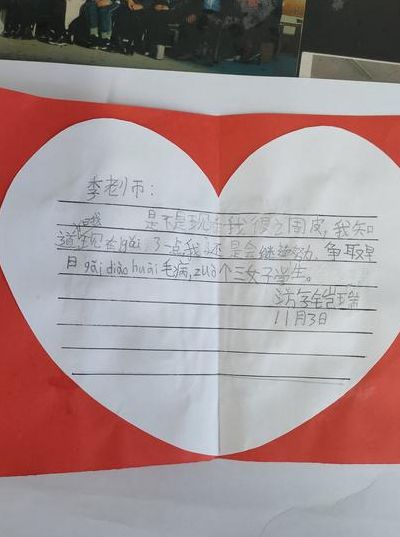 李老师：
是不是现在我很调皮，我知
道但我现在gǎi了一点，我还是会继续努力，争取早
日gǎi diào huài毛病，zuò个三好学生。
11月3日